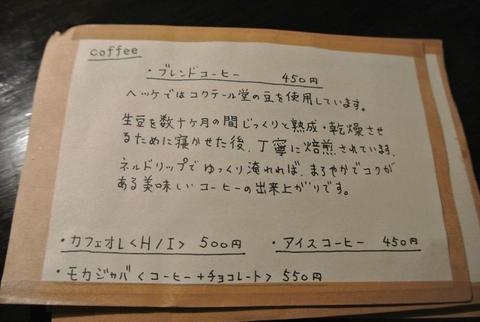 coffee
・ブレンドコーヒー 450円
ヘッケではコクテール堂の豆を使用しています。
生豆を数十ヶ月の間じっくりと熟成・乾燥させ
るために寝かせた後、丁寧に焙煎されています。
ネルドリップでゆっくり淹れれば、まろやかでコクが
ある美味しいコーヒーの出来上がりです。
・カフェオレ<H/I> 500円 ・アイスコーヒー 450円
・モカジャバ<コーヒー+チョコレート> 550円